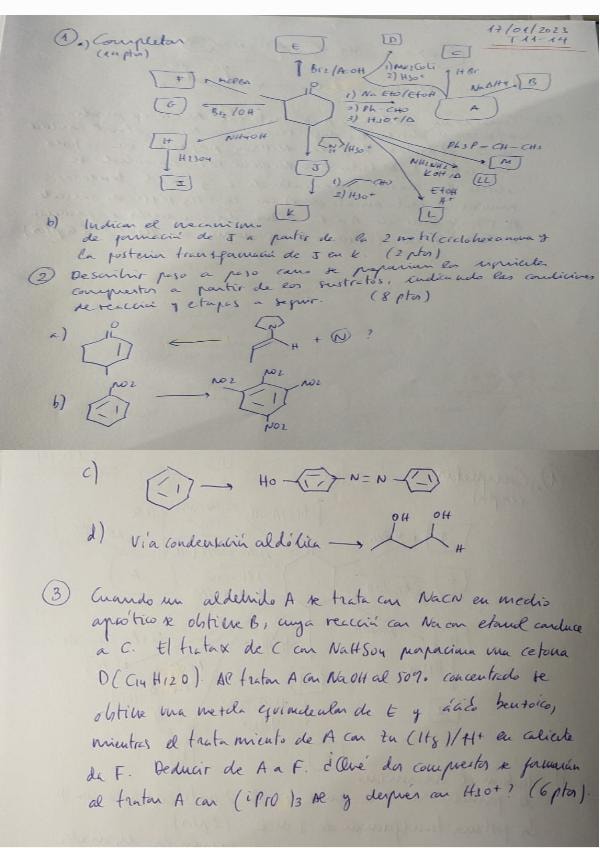 17/01/2023
T 11-14
① a) Completar
(14 ptos)
E
D
C
Br2/AcOH
2) H3O+
HBr
NaBH4
B
F
MCPBA
1) Na EtO/EtOH
2) Ph-CHO
3) H3O+/Δ
A
G
Br2/OH
O
H
NH2OH
N
H
/H3O+
Ph3P-CH-CH3
M
H2SO4
NH2NH2
KOH/Δ
LL
I
J
1)
CHO
2) H3O+
EtOH
H+
K
L
b) Indicar el mecanismo
de formación de J a partir de la 2 metilciclohexanona y
la posterior transformación de J en K. (2 ptos)
② Describir paso a paso como se prepararían los siguientes
compuestos a partir de los sustratos, indicando las condiciones
de reacción y etapas a seguir. (8 ptos)
a)
O
N
H
+ N ?
b)
NO2
NO2
NO2
NO2
NO2
c)
HO
N=N
d) Vía condensación aldólica
OH
OH
H
③ Cuando un aldehido A se trata con NaCN en medio
aprótico se obtiene B, cuya reacción con Na con etanol conduce
a C. El tratax de C con NaHSO4 proporciona una cetona
D (C14H12O). Al tratar A con NaOH al 50% concentrado se
obtiene una mezcla equimolecular de E y ácido benzoico,
mientras el tratamiento de A con Zn(Hg)/H+ en caliente
da F. Deducir de A a F. ¿Qué dos compuestos se formarán
al tratar A con (iPrO)3 Al y después con H3O+? (6 ptos).